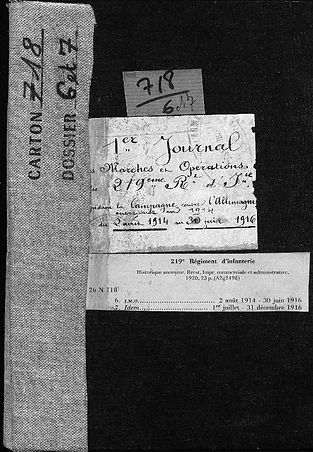 CARTON 718
DOSSIER 6 et 7
718
6.et7
1er Journal
s Marches et Opérations
219ème Rt d'Ie
pendant la Campagne contre l'Allemagne
du 2 août 1914 au 30 juin 1916
219e Régiment d'infanterie
Historique anonyme. Brest, Impr. commerciale et administrative,
1920, 23 p. (A2g2498)
26 N 718
6. J.M.O. 2 août 1914 - 30 juin 1916
7. Idem. 1er juillet - 31 décembre 1916